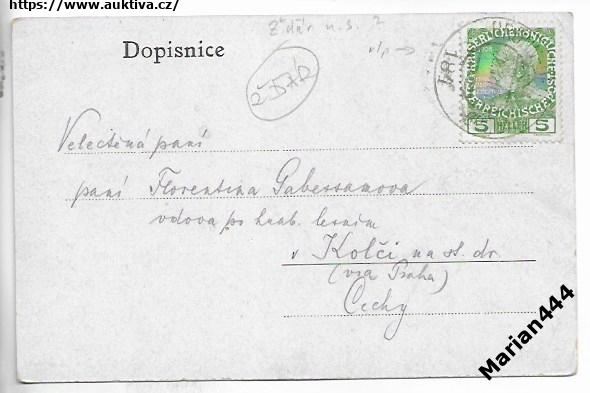 https://www.auktiva.cz/
Žďár n. s. ?
Dopisnice
v/p →
ŽĎÁR
KAISERLICHE KÖNIGLICHE
ÖSTERREICHISCHE
5 HELLER 5
Velectěná paní
paní Florentina Gabessamova
vdova po hrab. lesním
v Kolči na st. dr.
(via Praha)
Čechy
Marian444